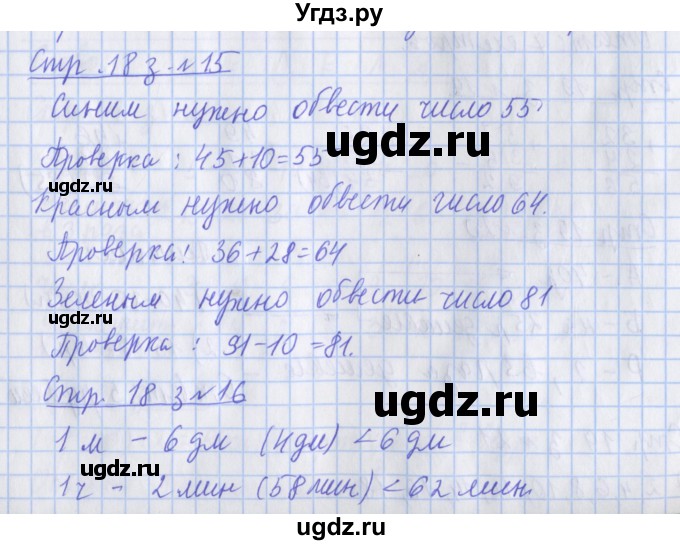 Угдз.ру
Стр. 18 з. №15
Синим нужно обвести число 55.
Проверка: 45+10=55
Красным нужно обвести число 64.
Проверка: 36+28=64
Зеленым нужно обвести число 81
Проверка: 91-10=81.
Стр. 18 з №16
1 м - 6 дм (4дм) < 6 дм
1ч - 2 мин (58 мин) < 62 мин.
ugdz.ru
ugdz.ru
ugdz.ru
ugdz.ru
ugdz.ru
ugdz.ru
ugdz.ru
ugdz.ru